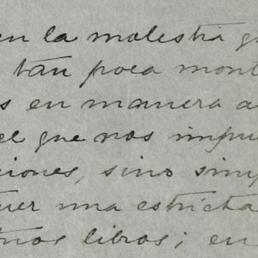 en la molestia q
tan poca mont
s en manera a
el que nos impu
ciones, sino sim
uer una estricta
tros libros; en